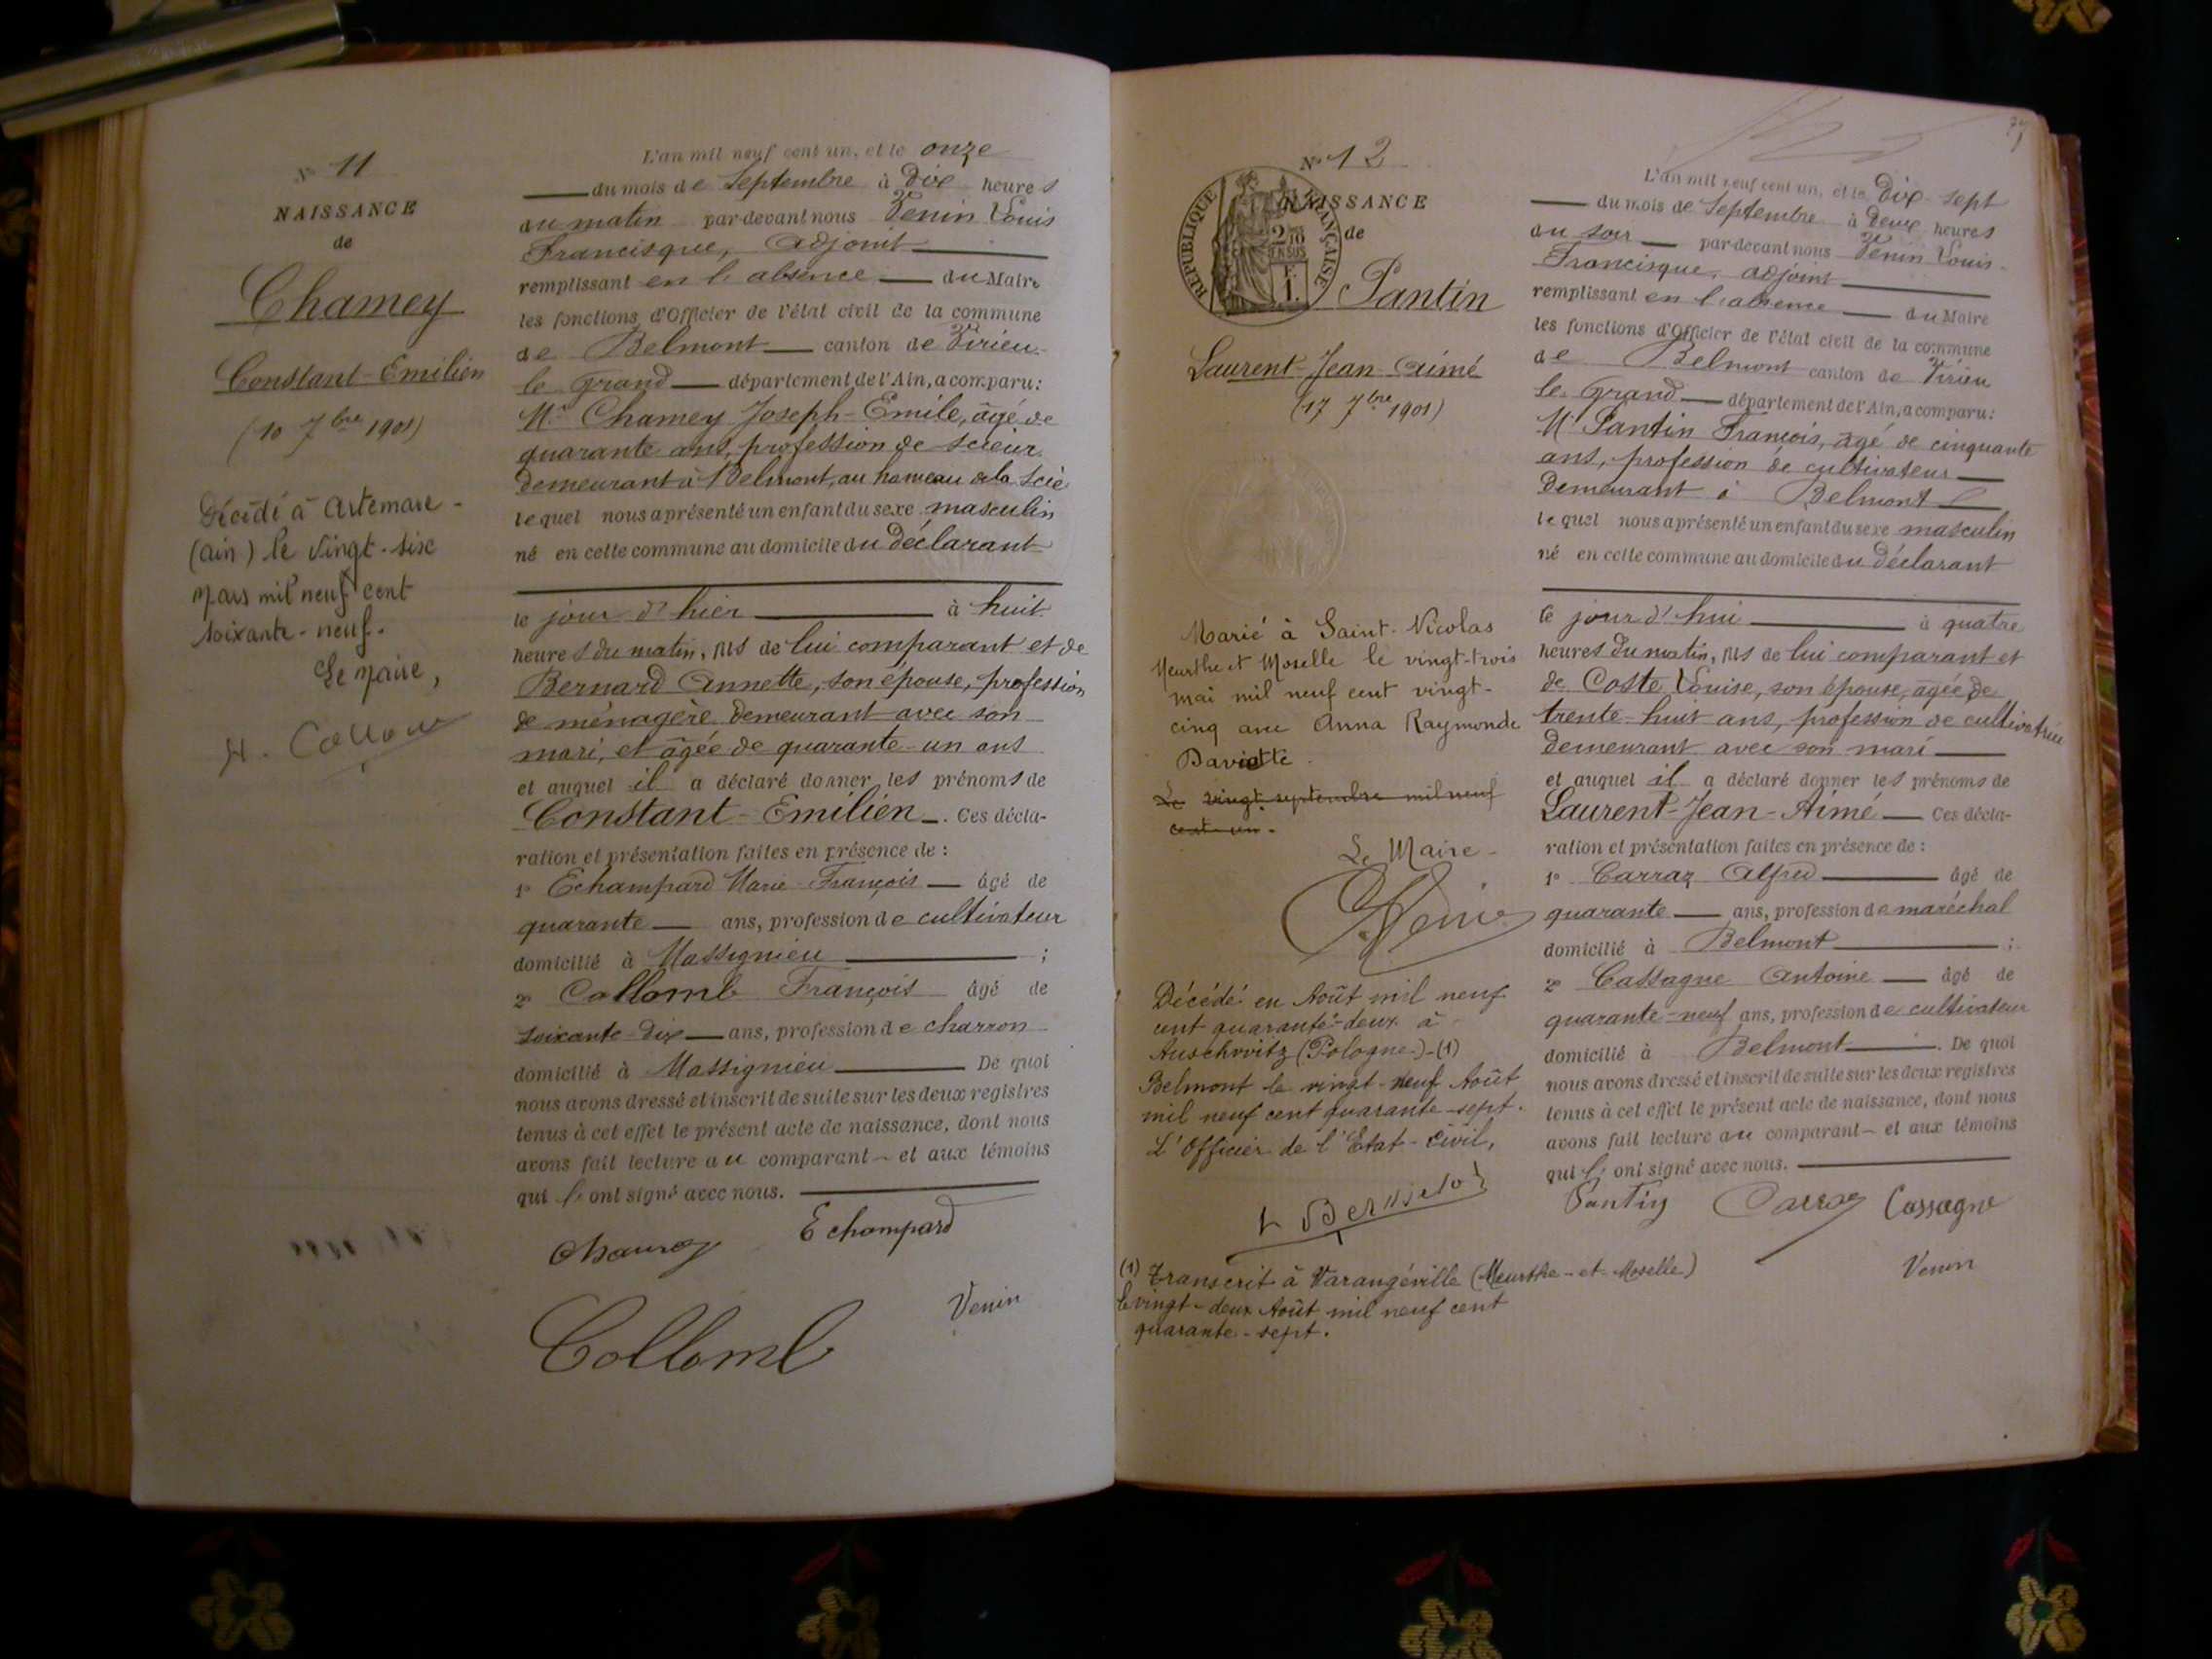 N° 11
NAISSANCE
de
Chamey
Constant-Emilien
(10 7bre 1901)
Décédé à Artemare -
(Ain) le vingt-six
Mars mil neuf cent
soixante-neuf.
Le Maire,
L'an mil neuf cent un, et le onze
du mois de Septembre à Dix heures
du matin par-devant nous Venin Louis
Francisque, Adjoint
remplissant en l'absence du Maire
les fonctions d'Officier de l'état civil de la commune
de Belmont canton de Virieu-
le Grand département de l'Ain, a comparu:
Mr Chamey Joseph-Emile, âgé de
quarante ans, profession de scieur
demeurant à Belmont, au hameau de la Scie
lequel nous a présenté un enfant du sexe masculin
né en cette commune au domicile du Déclarant
le jour d'hier à huit
heures du matin, fils de lui comparant et de
Bernard Annette, son épouse, profession
de ménagère demeurant avec son
mari, et âgée de quarante-un ans
et auquel il a déclaré donner les prénoms de
Constant-Emilien. Ces décla-
ration et présentation faites en présence de :
1° Echampard Marie-François âgé de
quarante ans, profession de cultivateur
domicilié à Massignieu ;
2° Collomb François âgé de
soixante-dix ans, profession de charron
domicilié à Massignieu De quoi
nous avons dressé et inscrit de suite sur les deux registres
tenus à cet effet le présent acte de naissance, dont nous
avons fait lecture au comparant et aux témoins
qui l'ont signé avec nous.
Chamey Echampard
Collomb Venin
N° 12
NAISSANCE
RÉPUBLIQUE FRANÇAISE
de
2/10 EN SUS
Santin
Laurent-Jean-Aimé
(17 7bre 1901)
Marié à Saint-Nicolas
Meurthe et Moselle le vingt-trois
mai mil neuf cent vingt-
cinq avec Anna Raymonde
Daviette.
Le vingt septembre mil neuf
cent un.
Le Maire
Décédé en Août mil neuf
cent quarante-deux à
Auschwitz (Pologne-)-(1)
Belmont le vingt-neuf Août
mil neuf cent quarante-sept.
L'Officier de l'Etat-Civil,
(1) Transcrit à Varangéville (Meurthe-et-Moselle)
le vingt-deux Août mil neuf cent
quarante-sept.
L'an mil neuf cent un, et le Dix-sept
du mois de Septembre à Deux heures
du soir par-devant nous Venin Louis-
Francisque, adjoint
remplissant en l'absence du Maire
les fonctions d'Officier de l'état civil de la commune
de Belmont canton de Virieu
le Grand département de l'Ain, a comparu:
Mr Santin François, âgé de cinquante
ans, profession de cultivateur
Demeurant à Belmont
lequel nous a présenté un enfant du sexe masculin
né en cette commune au domicile du Déclarant
le jour d'hui à quatre
heures du matin, fils de lui comparant et
de Coste Louise, son épouse, âgée de
trente-huit ans, profession de cultivatrice
Demeurant avec son mari
et auquel il a déclaré donner les prénoms de
Laurent-Jean-Aimé Ces décla-
ration et présentation faites en présence de :
1° Carraz Alfred âgé de
quarante ans, profession de maréchal
domicilié à Belmont ;
2° Cassagne Antoine âgé de
quarante-neuf ans, profession de cultivateur
domicilié à Belmont. De quoi
nous avons dressé et inscrit de suite sur les deux registres
tenus à cet effet le présent acte de naissance, dont nous
avons fait lecture au comparant et aux témoins
qui l'ont signé avec nous.
Santin Carraz Cassagne
Venin